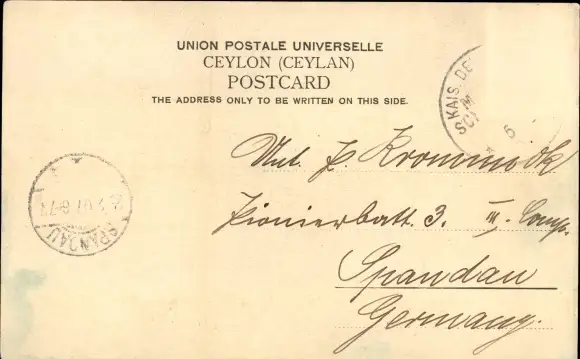 UNION POSTALE UNIVERSELLE
CEYLON (CEYLAN)
POSTCARD
THE ADDRESS ONLY TO BE WRITTEN ON THIS SIDE.
KAIS. DE
5
SPANDAU
Krommrock
Pionierbatt. 3. III. Comp.
Spandau
Germany.